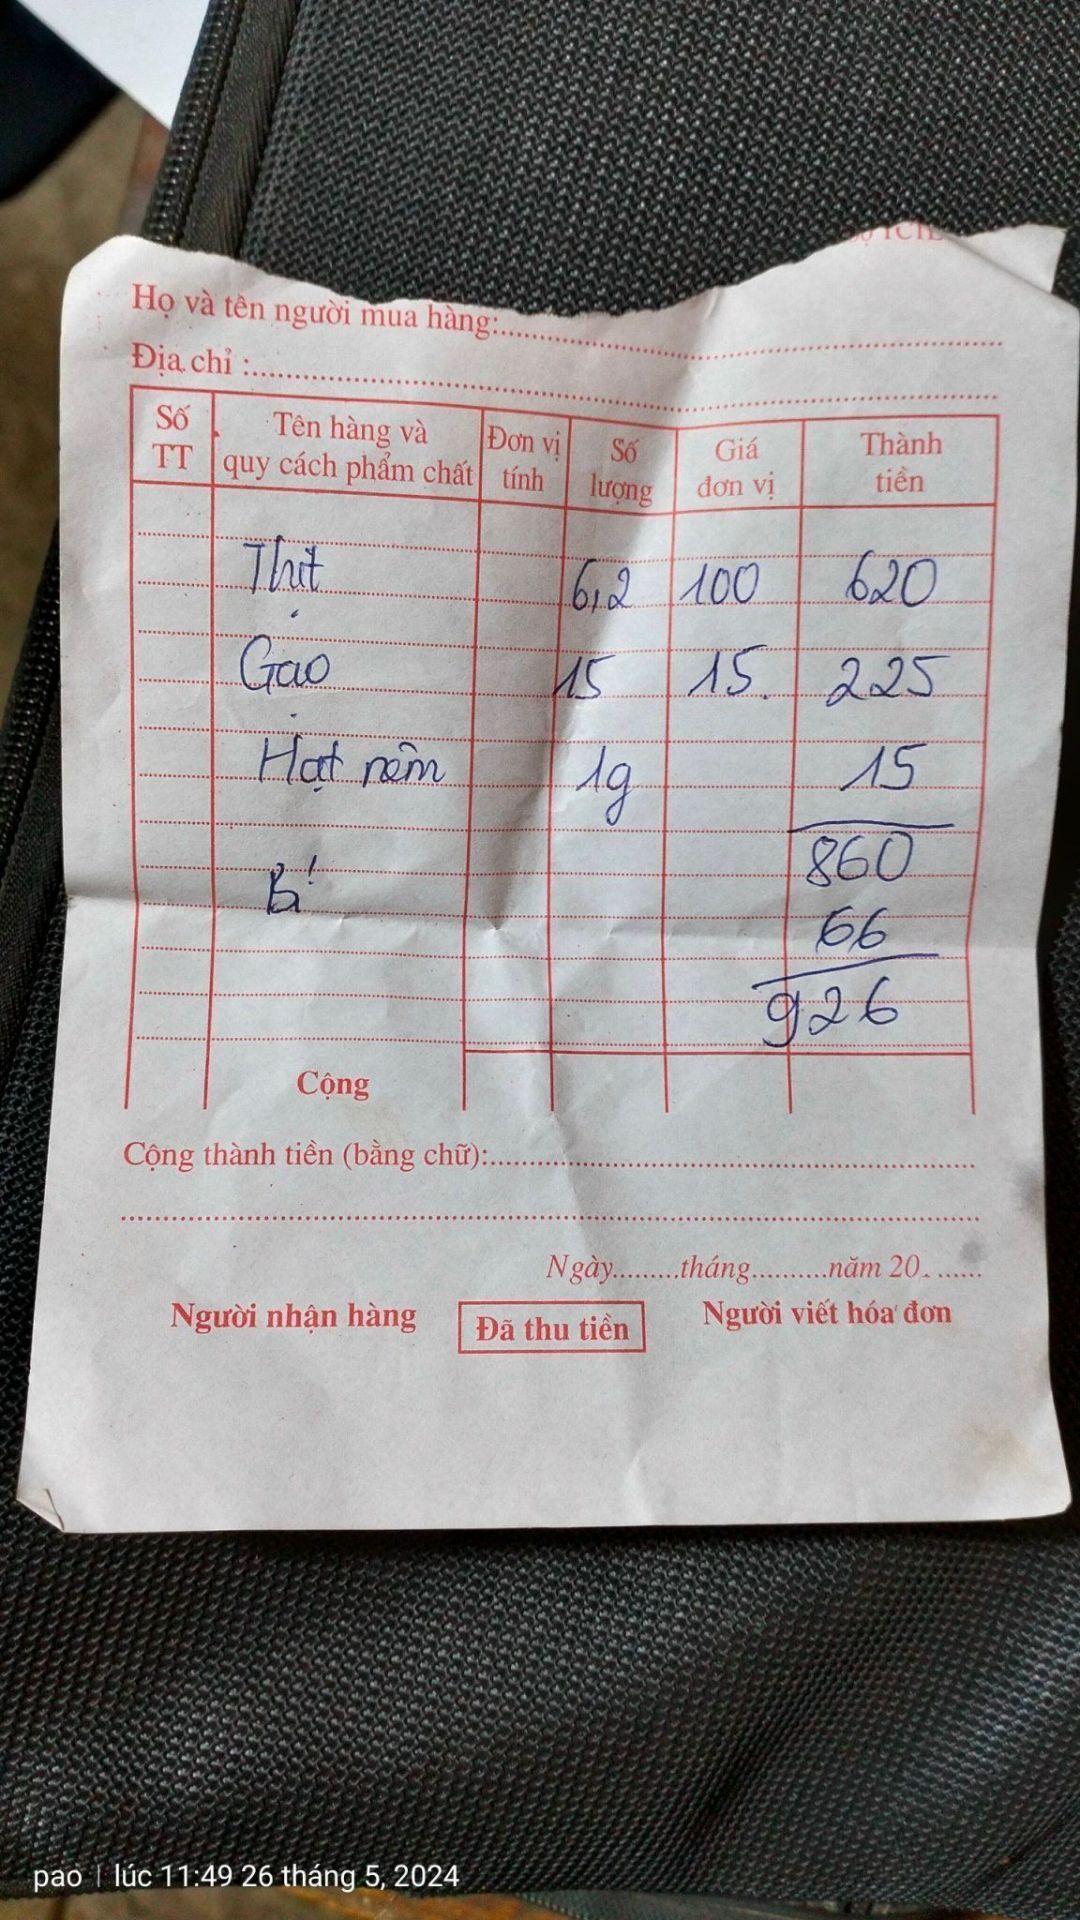 Họ và tên người mua hàng:
Địa chỉ :
Số TT Tên hàng và quy cách phẩm chất Đơn vị tính Số lượng Giá đơn vị Thành tiền
Thịt 6,2 100 620
Gạo 15 15. 225
Hạt nêm 1g 15
860
Bí 66
926
Cộng
Cộng thành tiền (bằng chữ):
Ngày.........tháng..........năm 20.......
Người nhận hàng Đã thu tiền Người viết hóa đơn
pao | lúc 11:49 26 tháng 5, 2024